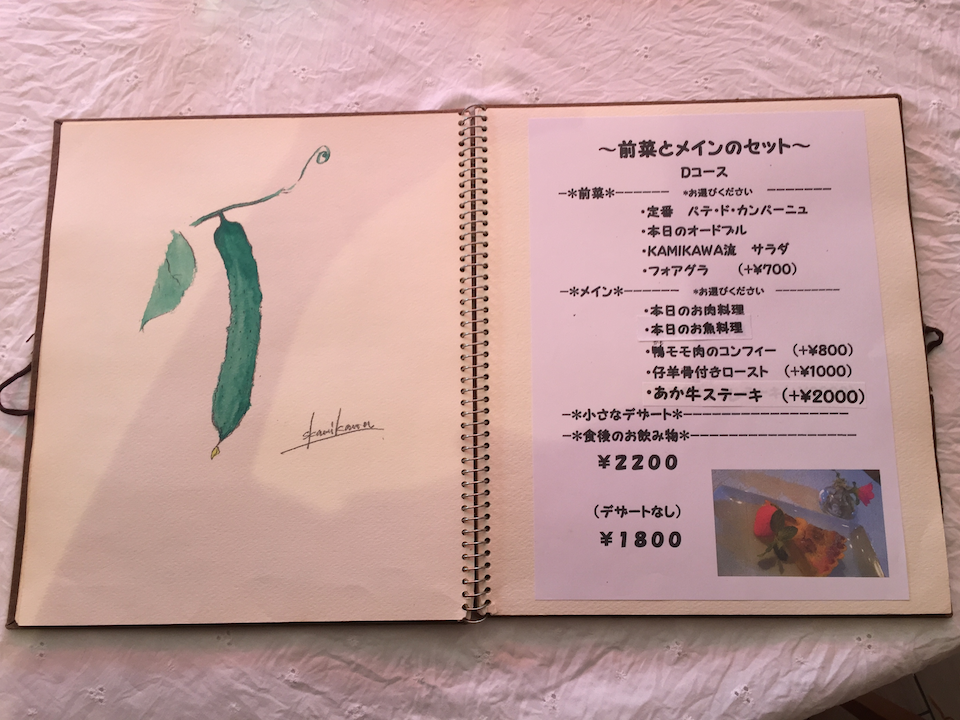 ～前菜とメインのセット～
Dコース
－＊前菜＊－－－－－－ ＊お選びください －－－－－－－
・定番 パテ・ド・カンパーニュ
・本日のオードブル
・KAMIKAWA流 サラダ
・フォアグラ （+￥700）
－＊メイン＊－－－－－－ ＊お選びください －－－－－－－
・本日のお肉料理
・本日のお魚料理
・鴨モモ肉のコンフィー （+￥800）
・仔羊骨付きロースト （+￥1000）
・あか牛ステーキ （+￥2000）
－＊小さなデザート＊－－－－－－－－－－－－－－－－－
－＊食後のお飲み物＊－－－－－－－－－－－－－－－－－
￥2200
（デザートなし）
￥1800